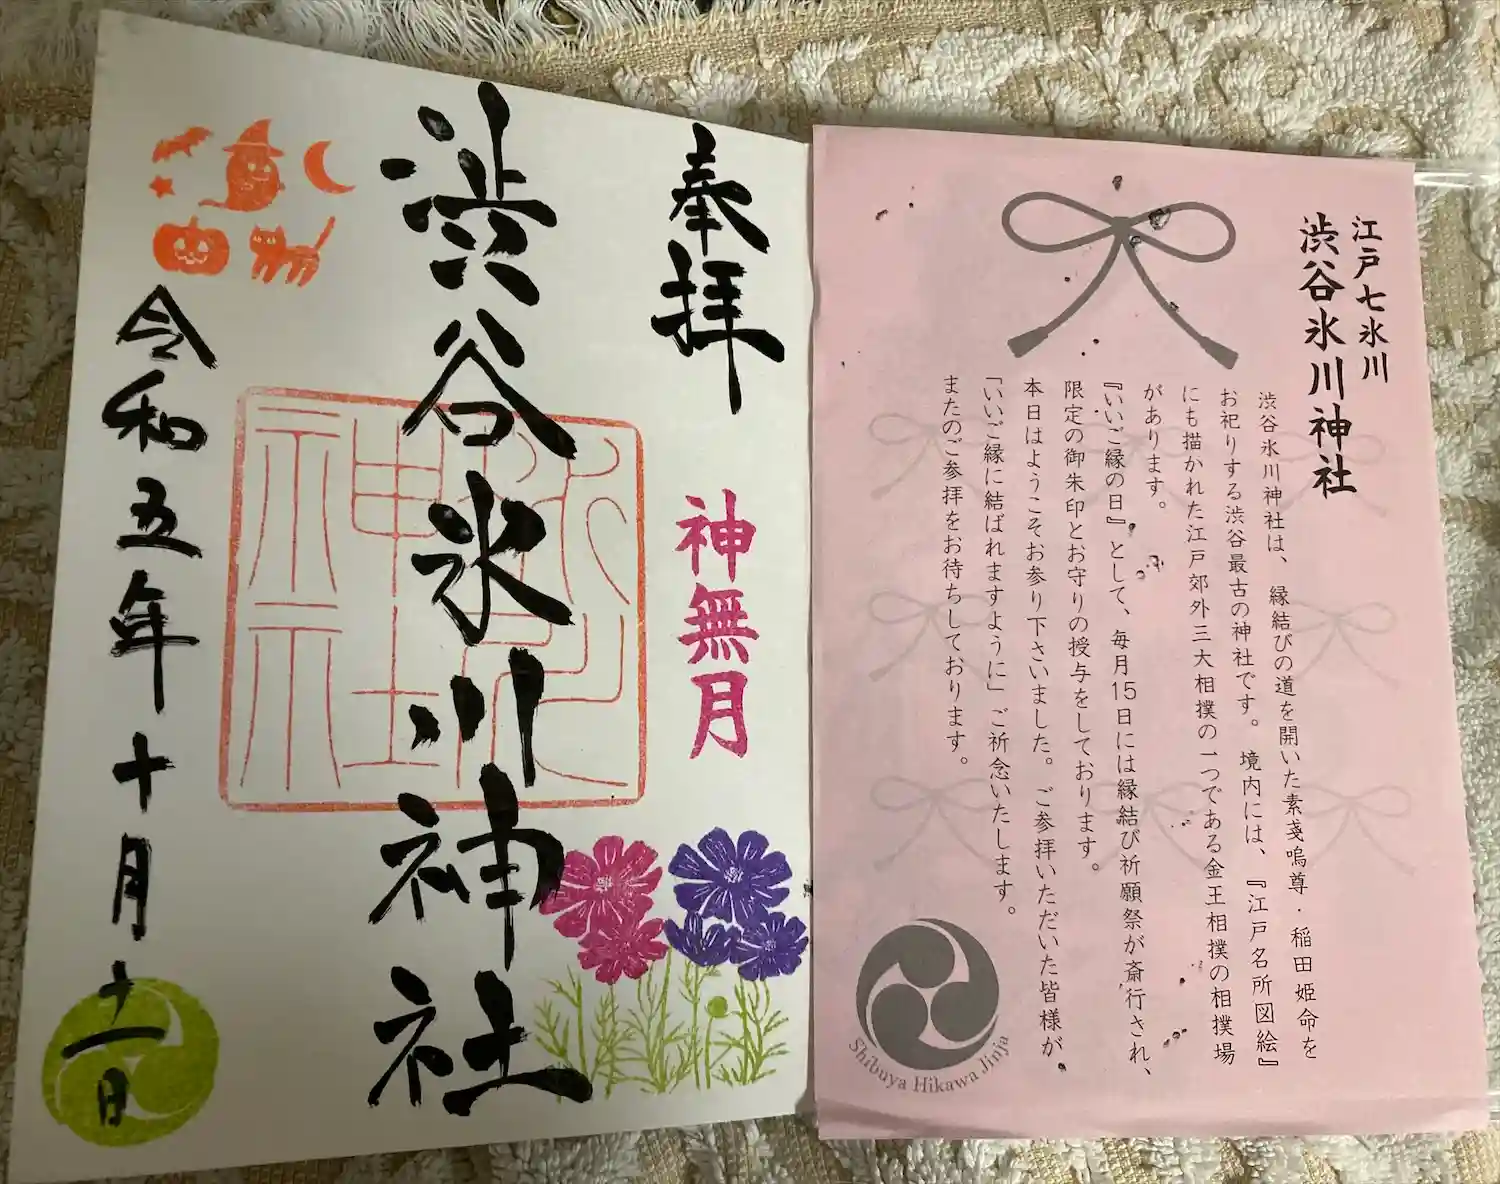 江戸七氷川
渋谷氷川神社
渋谷氷川神社は、縁結びの道を開いた素戔嗚尊・稲田姫命を
お祀りする渋谷最古の神社です。境内には、『江戸名所図絵』
にも描かれた江戸郊外三大相撲の一つである金王相撲の相撲場
があります。
『いいご縁の日』として、毎月15日には縁結び祈願祭が斎行され、
限定の御朱印とお守りの授与をしております。
本日はようこそお参り下さいました。ご参拝いただいた皆様が
「いいご縁に結ばれますように」ご祈念いたします。
またのご参拝をお待ちしております。
Shibuya Hikawa Jinja
奉拝
神無月
渋谷氷川神社
氷川
神社
令和五年十月十一日